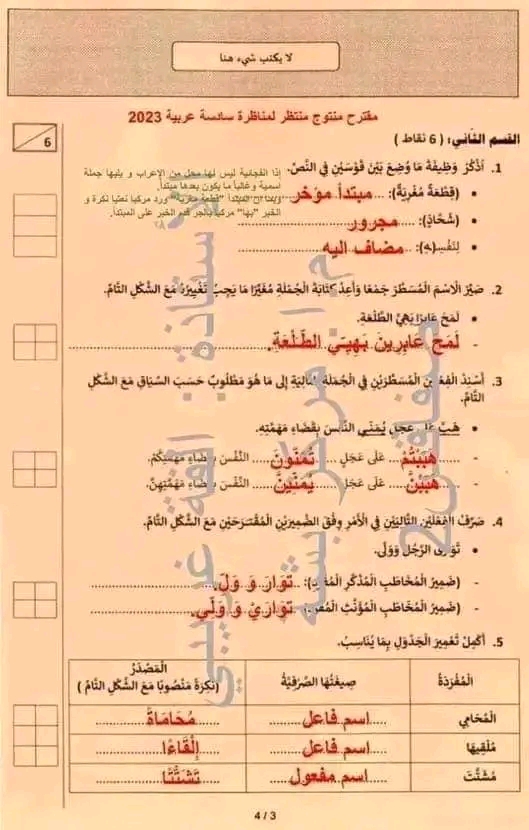 لا يكتب شيء هنا
مقترح منتوج منتظر لمناظرة سادسة عربية 2023
القسم الثاني: ( 6 نقاط )
6
1. أذكر وظيفة ما وضع بين قوسين في النص.
إذا الفجائية ليس لها محل من الإعراب و يليها جملة
اسمية وغالبا ما يكون بعدها مبتدأ.
المبتدأ "قطعة مغرية" ورد مركبا نعتيا نكرة و
الخبر "بها" مركبا بالجر قدم الخبر على المبتدأ.
• (قطعة مغرية): مبتدأ مؤخر
• (شحاذ): مجرور
• لنفس(ه): مضاف اليه
2. صير الاسم المسطر جمعا وأعد كتابة الجملة مغيرا ما يجب تغييره مع الشكل التام.
• لمح عابرا بهي الطلعة.
- لَمَحَ عَابِرِينَ بَهِيِّي الطَّلْعَةِ.
3. أسند الفعلين المسطرين في الجملة التالية إلى ما هو مطلوب حسب السياق مع الشكل
التام.
• هب على عجل يمني النفس بقضاء مهمته.
- هَبَبْتُمْ على عجل تُمَنُّونَ النفس بقضاء مهمتكم.
- هَبَبْنَ على عجل يُمَنِّينَ النفس بقضاء مهمتهن.
4. صرف الفعلين التاليين في الأمر وفق الضميرين المقترحين مع الشكل التام.
• توارى الرجل وولى.
- (ضمير المخاطب المذكر المفرد): تَوَارَ وَ وَلِّ.
- (ضمير المخاطب المؤنث المفرد): تَوَارَيْ وَ وَلِّي.
5. أكمل تعمير الجدول بما يناسب.
المفردة صيغتها الصرفية المصدر
(نكرة منصوبا مع الشكل التام )
المحامي اسم فاعل مُحَامَاةً
ملقيها اسم فاعل إِلْقَاءً
مشتت اسم مفعول تَشَتُّتًا
4 / 3